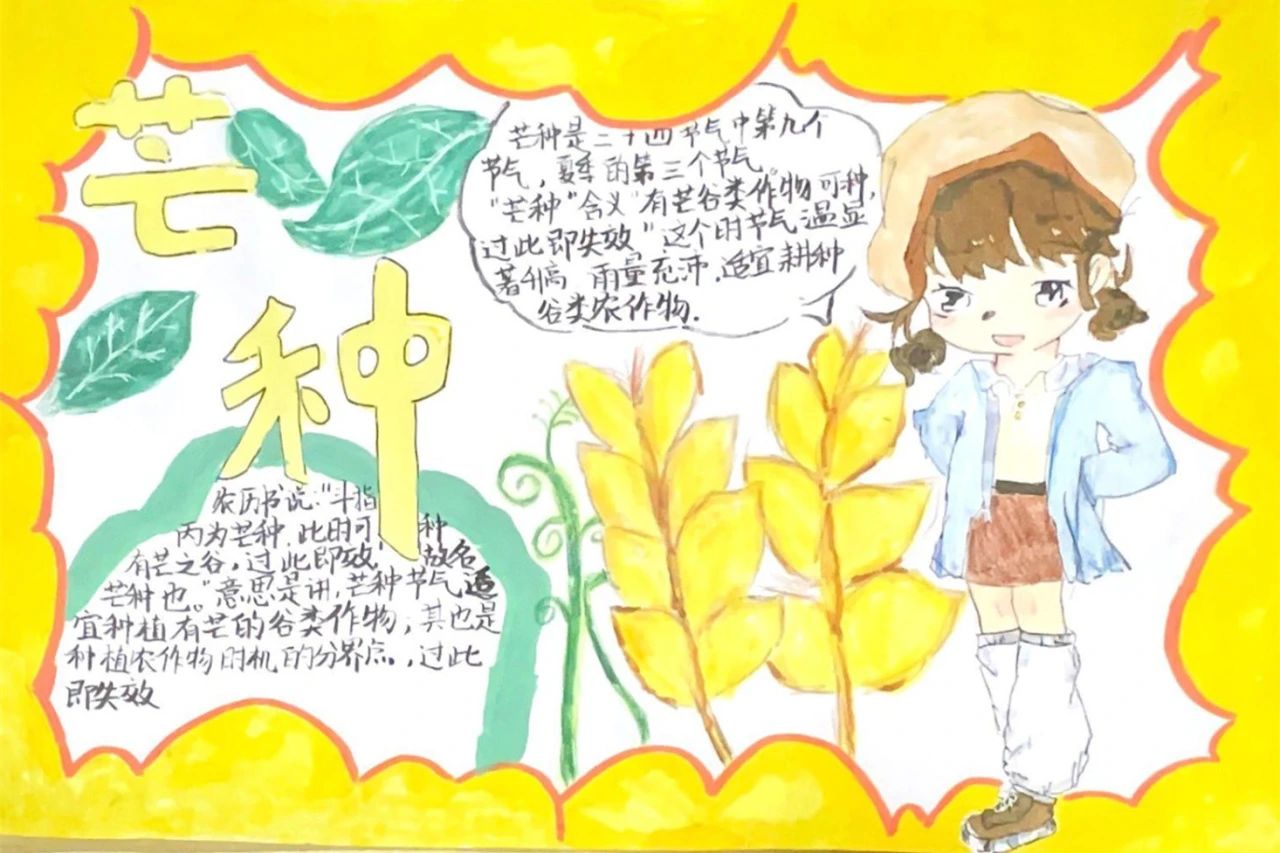 芒
种
芒种是二十四节气中第九个
节气，夏季的第三个节气。
"芒种"含义"有芒谷类作物可种,
过此即失效"这个时节气温显
著升高 雨量充沛.适宜耕种
谷类农作物.
农历书说:"斗指
丙为芒种,此时可 种
有芒之谷,过此即效, 故名
芒种也。"意思是讲,芒种节气适
宜种植有芒的谷类作物;其也是
种植农作物时机的分界点,过此
即失效